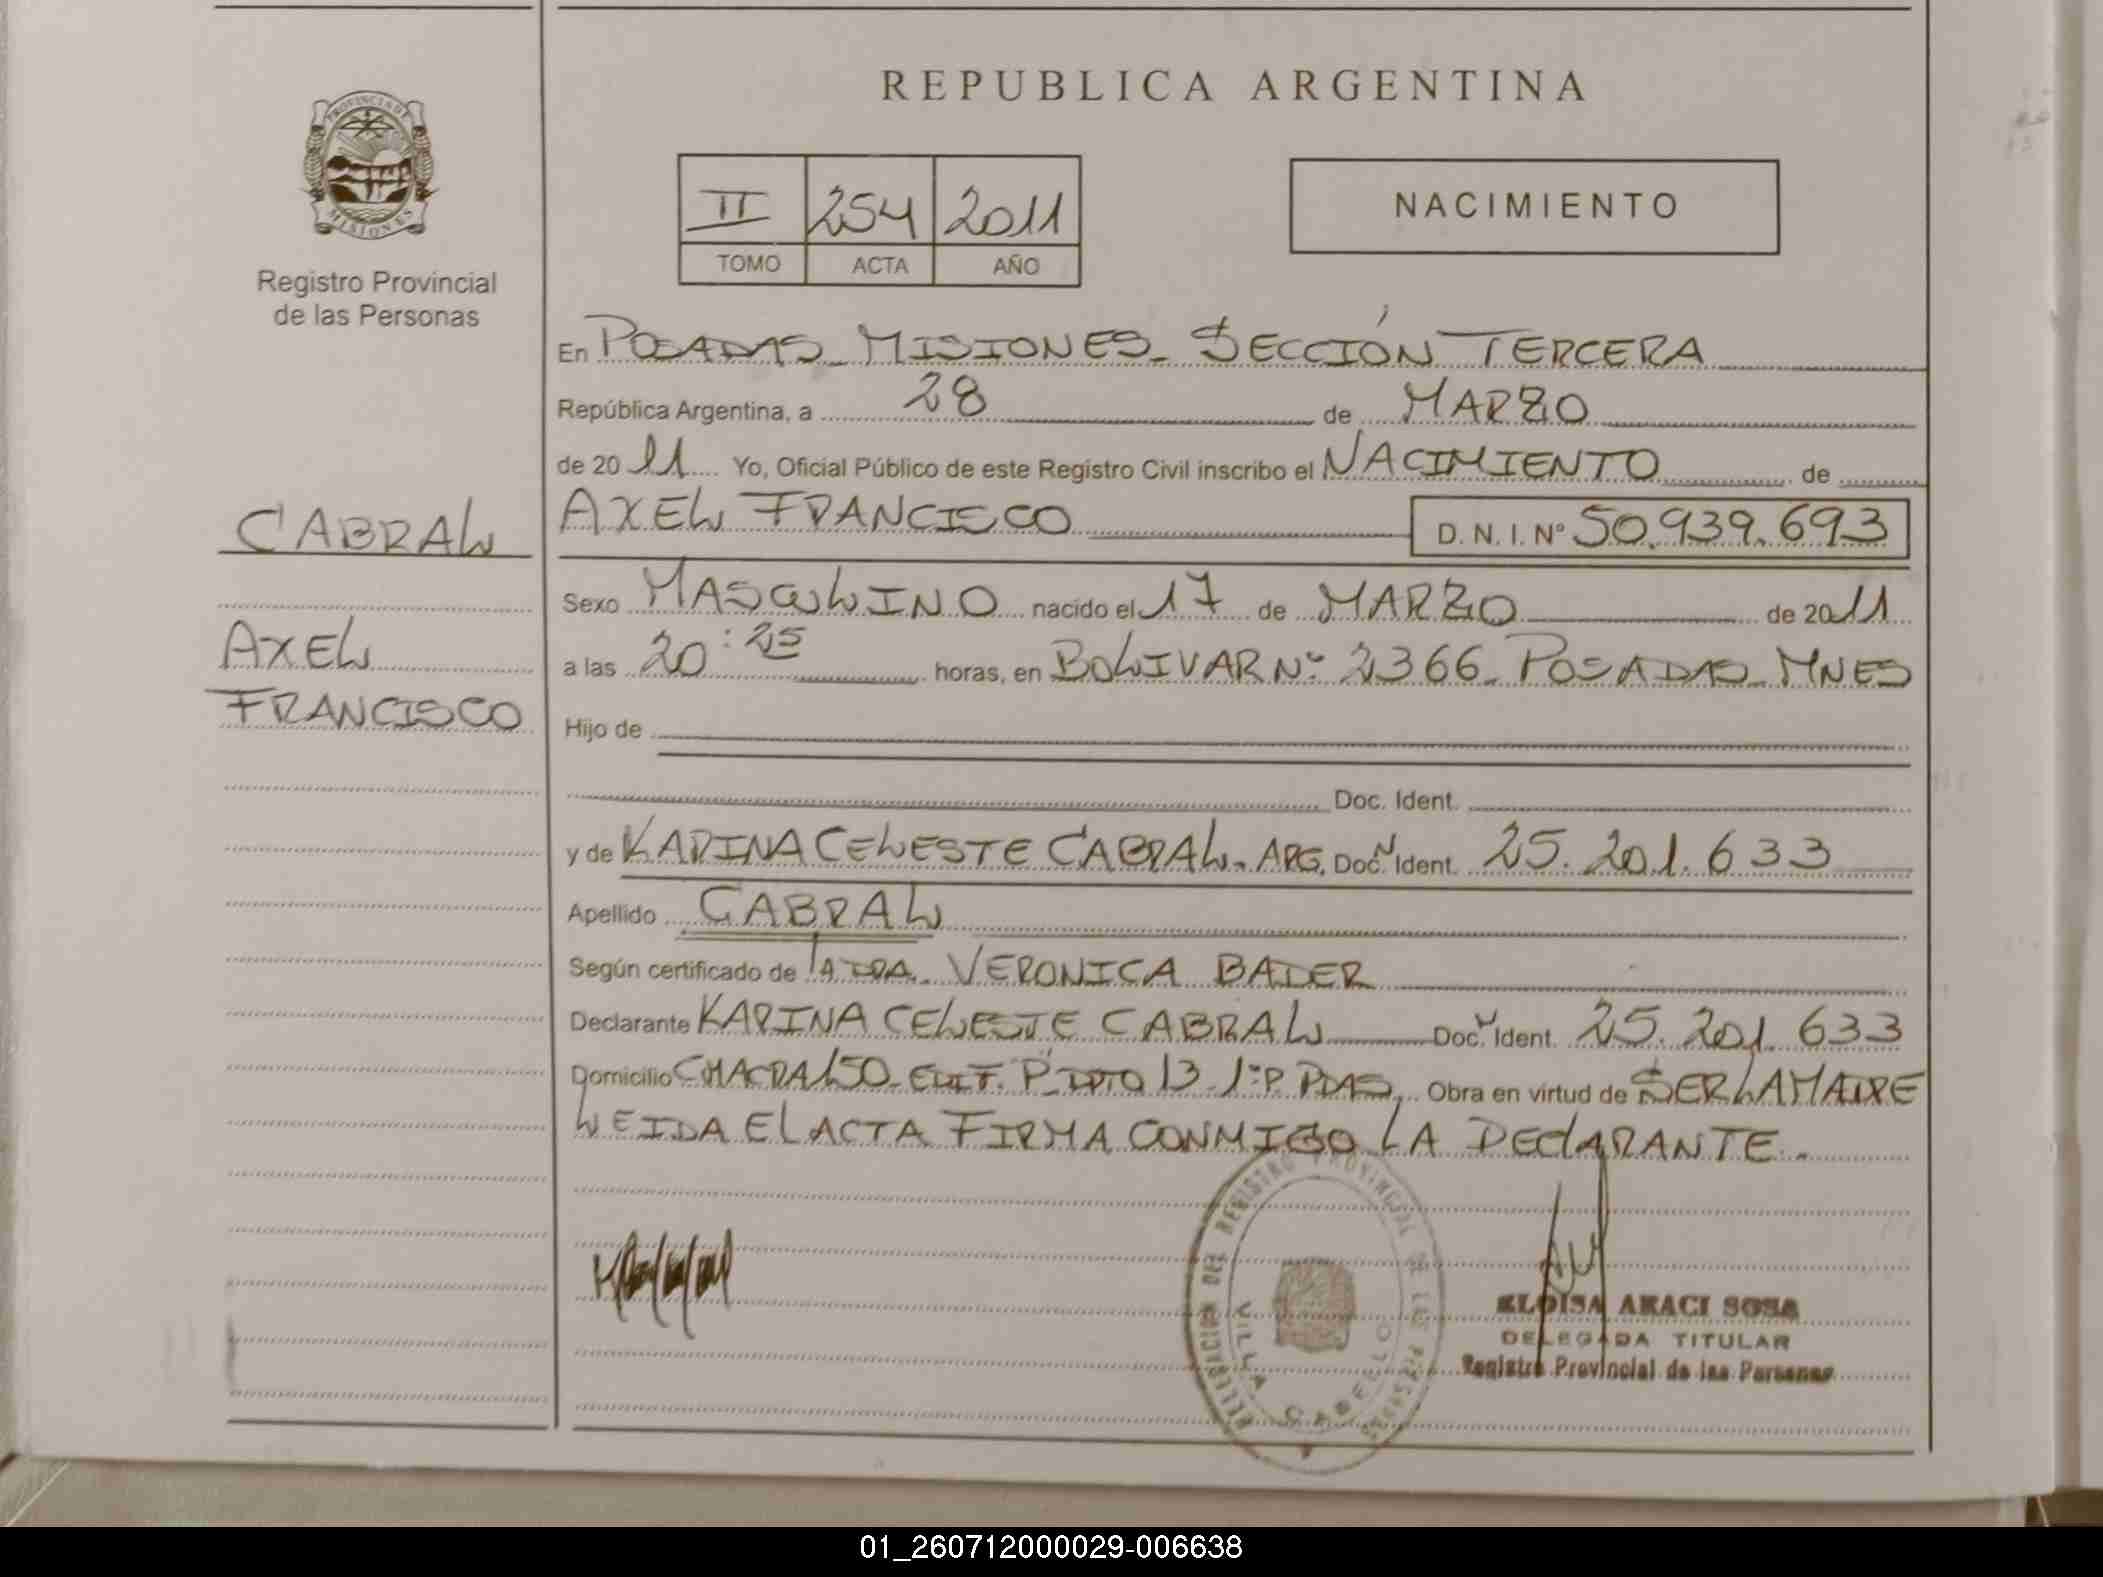 REPUBLICA ARGENTINA
PROVINCIA DE
MISIONES
Registro Provincial
de las Personas
II 254 2011
TOMO ACTA AÑO
NACIMIENTO
En POSADAS_ MISIONES_ SECCIÓN TERCERA
República Argentina, a 28 de MARZO
de 2011 Yo, Oficial Público de este Registro Civil inscribo el NACIMIENTO de
CABRAL
AXEL FRANCISCO D. N. I. Nº 50.939.693
Sexo MASCULINO nacido el 17 de MARZO de 2011
AXEL
FRANCISCO
a las 20:25 horas, en BOLIVAR Nº 2366_ POSADAS_ MNES
Hijo de
Doc. Ident.
y de KARINA CELESTE CABRAL_ ARG. Doc. Ident. 25.201.633
Apellido CABRAL
Según certificado de VERONICA BADER
Declarante KARINA CELESTE CABRAL Doc. Ident. 25.201.633
Domicilio CHACRA 150_ EDIF. P_ DPTO 13_ 1ºP. PDAS. Obra en virtud de SER LA MADRE
LEIDA EL ACTA FIRMA CONMIGO LA DECLARANTE.
DELEGACION DEL REGISTRO PROVINCIAL DE LAS PERSONAS
VILLA CABELLO
ELOISA ARACI SOSA
DELEGADA TITULAR
Registro Provincial de las Personas
01_260712000029-006638